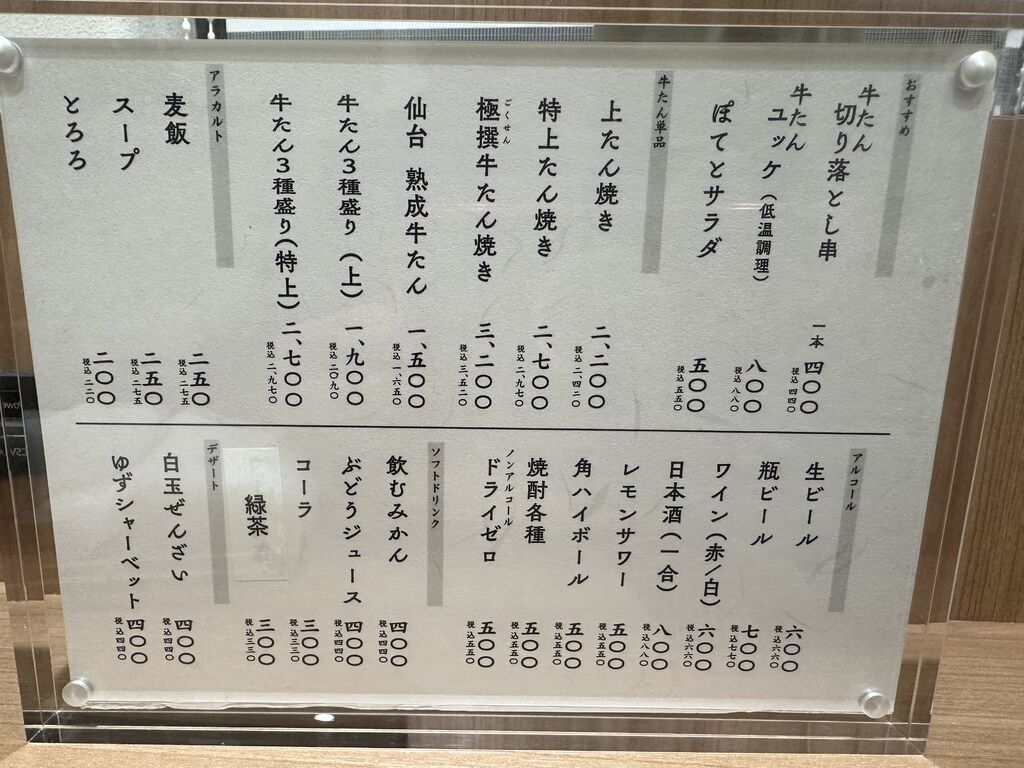 おすすめ
牛たん切り落とし串 一本 四〇〇 税込 四四〇
牛たんユッケ（低温調理） 八〇〇 税込 八八〇
ぽてとサラダ 五〇〇 税込 五五〇
牛たん単品
上たん焼き 二、二〇〇 税込 二、四二〇
特上たん焼き 二、七〇〇 税込 二、九七〇
ごくせん
極撰牛たん焼き 三、二〇〇 税込 三、五二〇
仙台 熟成牛たん 一、五〇〇 税込 一、六五〇
牛たん３種盛り（上） 一、九〇〇 税込 二〇九〇
牛たん３種盛り（特上） 二、七〇〇 税込 二、九七〇
アラカルト
麦飯 二五〇 税込 二七五
スープ 二五〇 税込 二七五
とろろ 二〇〇 税込 二二〇
アルコール
生ビール 六〇〇 税込六六〇
瓶ビール 七〇〇 税込七七〇
ワイン（赤／白） 六〇〇 税込六六〇
日本酒（一合） 八〇〇 税込八八〇
レモンサワー 五〇〇 税込五五〇
角ハイボール 五〇〇 税込五五〇
焼酎各種 五〇〇 税込五五〇
ノンアルコール
ドライゼロ 五〇〇 税込五五〇
ソフトドリンク
飲むみかん 四〇〇 税込四四〇
ぶどうジュース 四〇〇 税込四四〇
コーラ 三〇〇 税込三三〇
緑茶 三〇〇 税込三三〇
デザート
白玉ぜんざい 四〇〇 税込四四〇
ゆずシャーベット 四〇〇 税込四四〇